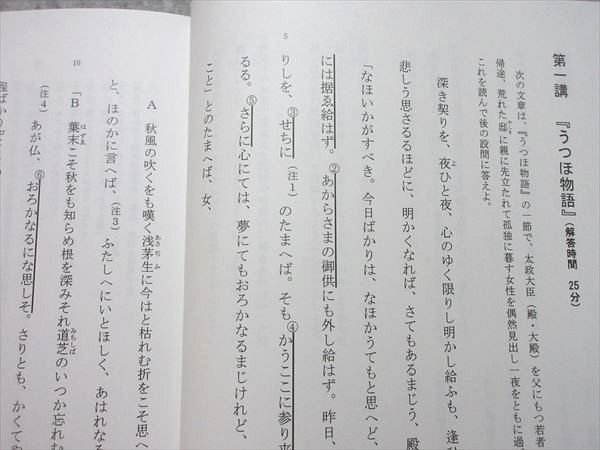 第一講　『うつほ物語』（解答時間　25分）
次の文章は、『うつほ物語』の一節で、太政大臣（殿・大殿）を父にもつ若者
帰途、荒れた邸に親に先立たれて孤独に暮す女性を偶然見出し一夜をともに過
これを読んで後の設問に答えよ。
深き契りを、夜ひと夜、心のゆく限りし明かし給ふも、逢
悲しう思さるるほどに、明かくなれば、さてもあるまじう、殿
「なほいかがすべき。今日ばかりは、なほかうてもと思へど、
には据ゑ給はず。②あからさまの御供にも外し給はず。昨日、
5
りしを、③せちに（注1）のたまへば。そも④かうここに参り来
るる。⑤さらに心にては、夢にてもおろかなるまじけれど、
こと」とのたまへば、女、
A　秋風の吹くをも嘆く浅茅生に今はと枯れむ折をこそ思へ
と、ほのかに言へば、（注3）ふたしへにいとほしく、あはれなる
10
「B　葉末こそ秋をも知らめ根を深みそれ道芝のいつか忘れむ
（注4）あが仏、⑥おろかなるにな思しそ。さりとも、かくてや